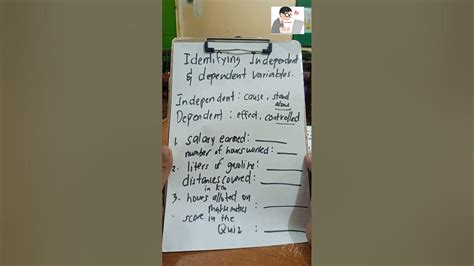 Identifying Independent
& dependent variables.
Independent : cause, stand
alone
Dependent : effect, controlled
1. salary earned :
number of hours worked :
2. liters of gasoline :
distances covered :
in km
3. hours alloted on
mathematics :
score in the
Quiz :